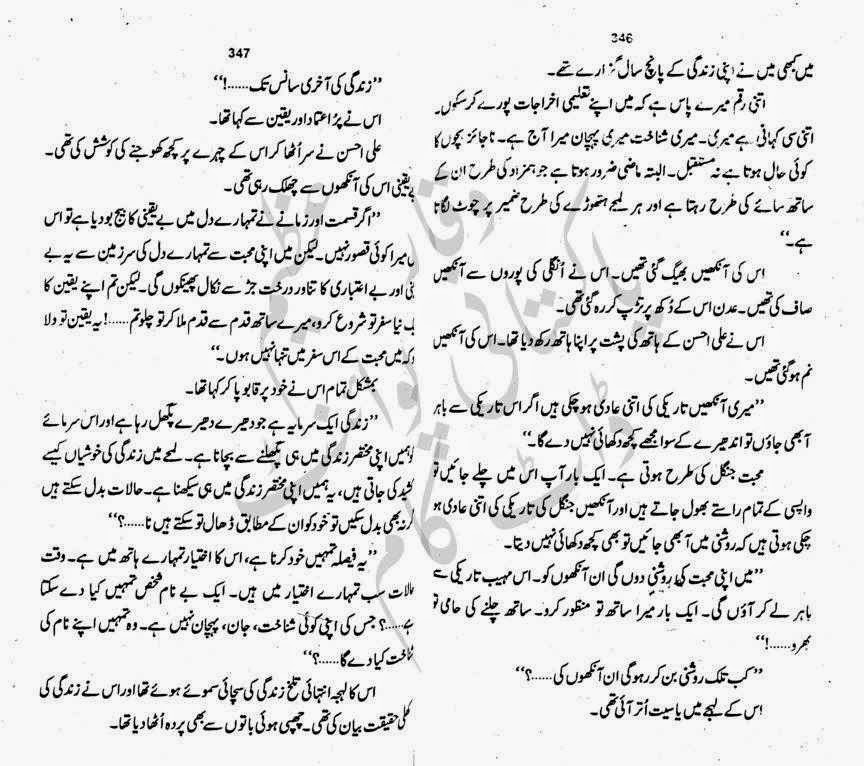 346
میں کبھی میں نے اپنی زندگی کے پانچ سال گزارے تھے۔
اتنی رقم میرے پاس ہے کہ میں اپنے تعلیمی اخراجات پورے کر سکوں۔
اتنی سی کہانی ہے میری۔ میری شناخت میری پہچان میرا آج ہے۔ ناجائز بچوں کا
کوئی حال ہوتا ہے نہ مستقبل۔ البتہ ماضی ضرور ہوتا ہے جو ہمزاد کی طرح ان کے
ساتھ سائے کی طرح رہتا ہے اور ہر لمحے ہتھوڑے کی طرح ضمیر پر چوٹ لگاتا
ہے۔‘‘
اس کی آنکھیں بھیگ گئی تھیں۔ اس نے اُنگلی کی پوروں سے آنکھیں
صاف کی تھیں۔ عدن اس کے دُکھ پر تڑپ کر رہ گئی تھی۔
اس نے علی احسن کے ہاتھ کی پشت پر اپنا ہاتھ رکھ دیا تھا۔ اس کی آنکھیں
نم ہو گئی تھیں۔
’’میری آنکھیں تاریکی کی اتنی عادی ہو چکی ہیں اگر اس تاریکی سے باہر
آ بھی جاؤں تو اندھیرے کے سوا مجھے کچھ دکھائی نہیں دے گا۔‘‘
محبت جنگل کی طرح ہوتی ہے۔ ایک بار آپ اس میں چلے جائیں تو
واپسی کے تمام راستے بھول جاتے ہیں اور آنکھیں جنگل کی تاریکی کی اتنی عادی ہو
چکی ہوتی ہیں کہ روشنی میں آ بھی جائیں تو بھی کچھ دکھائی نہیں دیتا۔
’’میں اپنی محبت کی روشنی دوں گی ان آنکھوں کو۔ اس مہیب تاریکی سے
باہر لے کر آؤں گی۔ ایک بار میرا ساتھ تو منظور کرو۔ ساتھ چلنے کی حامی تو
بھرو......!‘‘
’’کب تلک روشنی بن کر رہو گی ان آنکھوں کی......؟‘‘
اس کے لہجے میں یاسیت اُتر آئی تھی۔
347
’’زندگی کی آخری سانس تک......!‘‘
اس نے پُر اعتماد اور یقین سے کہا تھا۔
علی احسن نے سر اُٹھا کر اس کے چہرے پر کچھ کھوجنے کی کوشش کی تھی۔
بے یقینی اس کی آنکھوں سے چھلک رہی تھی۔
’’اگر قسمت اور زمانے نے تمہارے دل میں بے یقینی کا بیج بو دیا ہے تو اس
میں میرا کوئی قصور نہیں۔ لیکن میں اپنی محبت سے تمہارے دل کی سرزمین سے یہ بے
اور بے اعتباری کا تناور درخت جڑ سے نکال پھینکوں گی۔ لیکن تم اپنے یقین کا
نیا سفر تو شروع کرو، میرے ساتھ قدم سے قدم ملا کر تو چلو تم......! یہ یقین تو دلا
کہ میں محبت کے اس سفر میں تنہا نہیں ہوں۔‘‘
بمشکل تمام اس نے خود پر قابو پا کر کہا تھا۔
’’زندگی ایک سرمایہ ہے جو دھیرے دھیرے پگھل رہا ہے اور اس سرمائے
کو ہمیں اپنی مختصر زندگی میں ہی پگھلنے سے بچانا ہے۔ لمحے میں زندگی کی خوشیاں کیسے
کشید کی جاتی ہیں، یہ ہمیں اپنی مختصر زندگی میں ہی سیکھنا ہے۔ حالات بدل سکتے ہیں
گر نہ بھی بدل سکیں تو خود کو ان کے مطابق ڈھال تو سکتے ہیں نا......؟‘‘
’’یہ فیصلہ تمہیں خود کرنا ہے، اس کا اختیار تمہارے ہاتھ میں ہے۔ وقت
حالات سب تمہارے اختیار میں ہیں۔ ایک بے نام شخص تمہیں کیا دے سکتا
ہے......؟ جس کی اپنی کوئی شناخت، جان، پہچان نہیں ہے۔ وہ تمہیں اپنے نام کی
شناخت کیا دے گا......؟‘‘
اس کا لہجہ انتہائی تلخ زندگی کی سچائی سموئے ہوئے تھا اور اس نے زندگی کی
حقیقت بیان کی تھی۔ چھپی ہوئی باتوں سے بھی پردہ اُٹھا دیا تھا۔